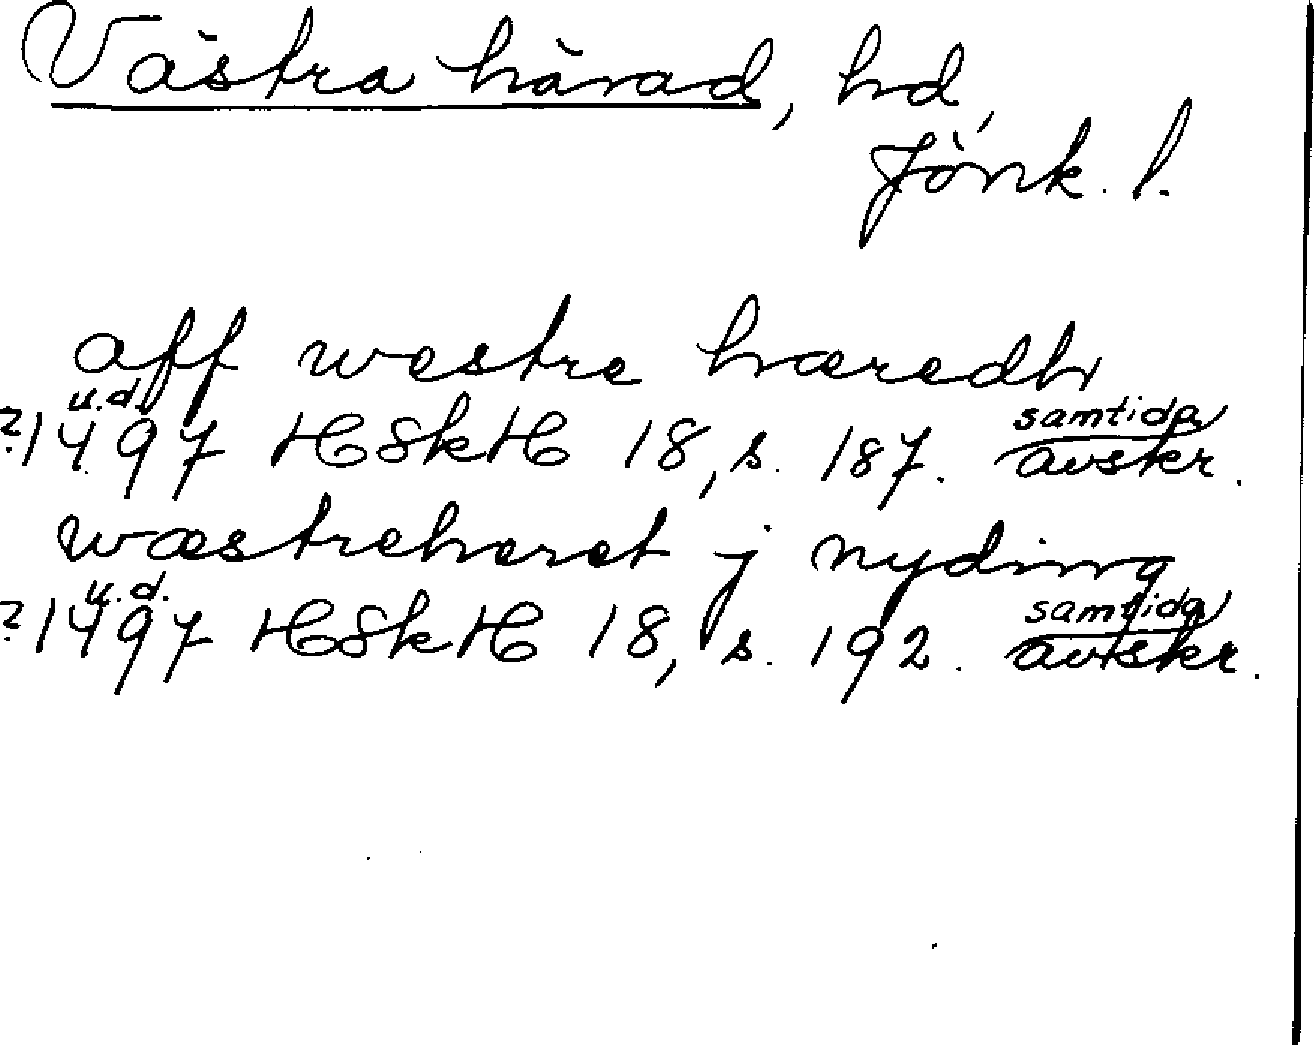 Västra härad, hd,
Jönk. l.
aff westre hæredh
u.d. samtida
?1497 HSkH 18, s. 187. avskr.
wæstreheret j nyding
u.d. samtida
?1497 HSkH 18, s. 192. avskr.